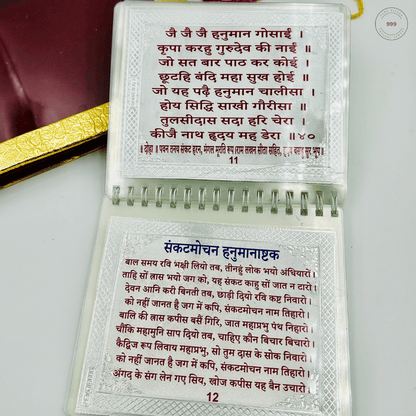 999
जै जै जै हनुमान गोसाईं ।
कृपा करहु गुरुदेव की नाईं ॥
जो सत बार पाठ कर कोई ।
छूटहि बंदि महा सुख होई ॥
जो यह पढ़ै हनुमान चालीसा ।
होय सिद्धि साखी गौरीसा ॥
तुलसीदास सदा हरि चेरा ।
कीजै नाथ हृदय मह डेरा ॥४०
॥ दोहा ॥ पवन तनय संकट हरन, मंगल मूरति रूप। राम लखन सीता सहित, हृदय बसहु सुर भूप॥
11
संकटमोचन हनुमानाष्टक
बाल समय रवि भक्षी लियो तब, तीनहुं लोक भयो अंधियारो।
ताहि सों त्रास भयो जग को, यह संकट काहु सों जात न टारो।
देवन आनि करी बिनती तब, छाड़ी दियो रवि कष्ट निवारो।
को नहीं जानत है जग में कपि, संकटमोचन नाम तिहारो।
बालि की त्रास कपीस बसैं गिरि, जात महाप्रभु पंथ निहारो।
चौंकि महामुनि साप दियो तब, चाहिए कौन बिचार बिचारो।
कैद्विज रूप लिवाय महाप्रभु, सो तुम दास के सोक निवारो।
को नहीं जानत है जग में कपि, संकटमोचन नाम तिहारो।
अंगद के संग लेन गए सिय, खोज कपीस यह बैन उचारो।
12